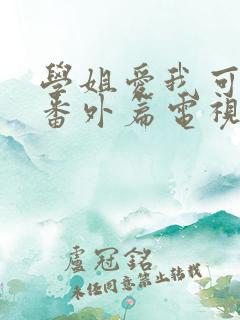 學姐愛我可
番外篇電視
盧冠銘
未經同意禁止转载